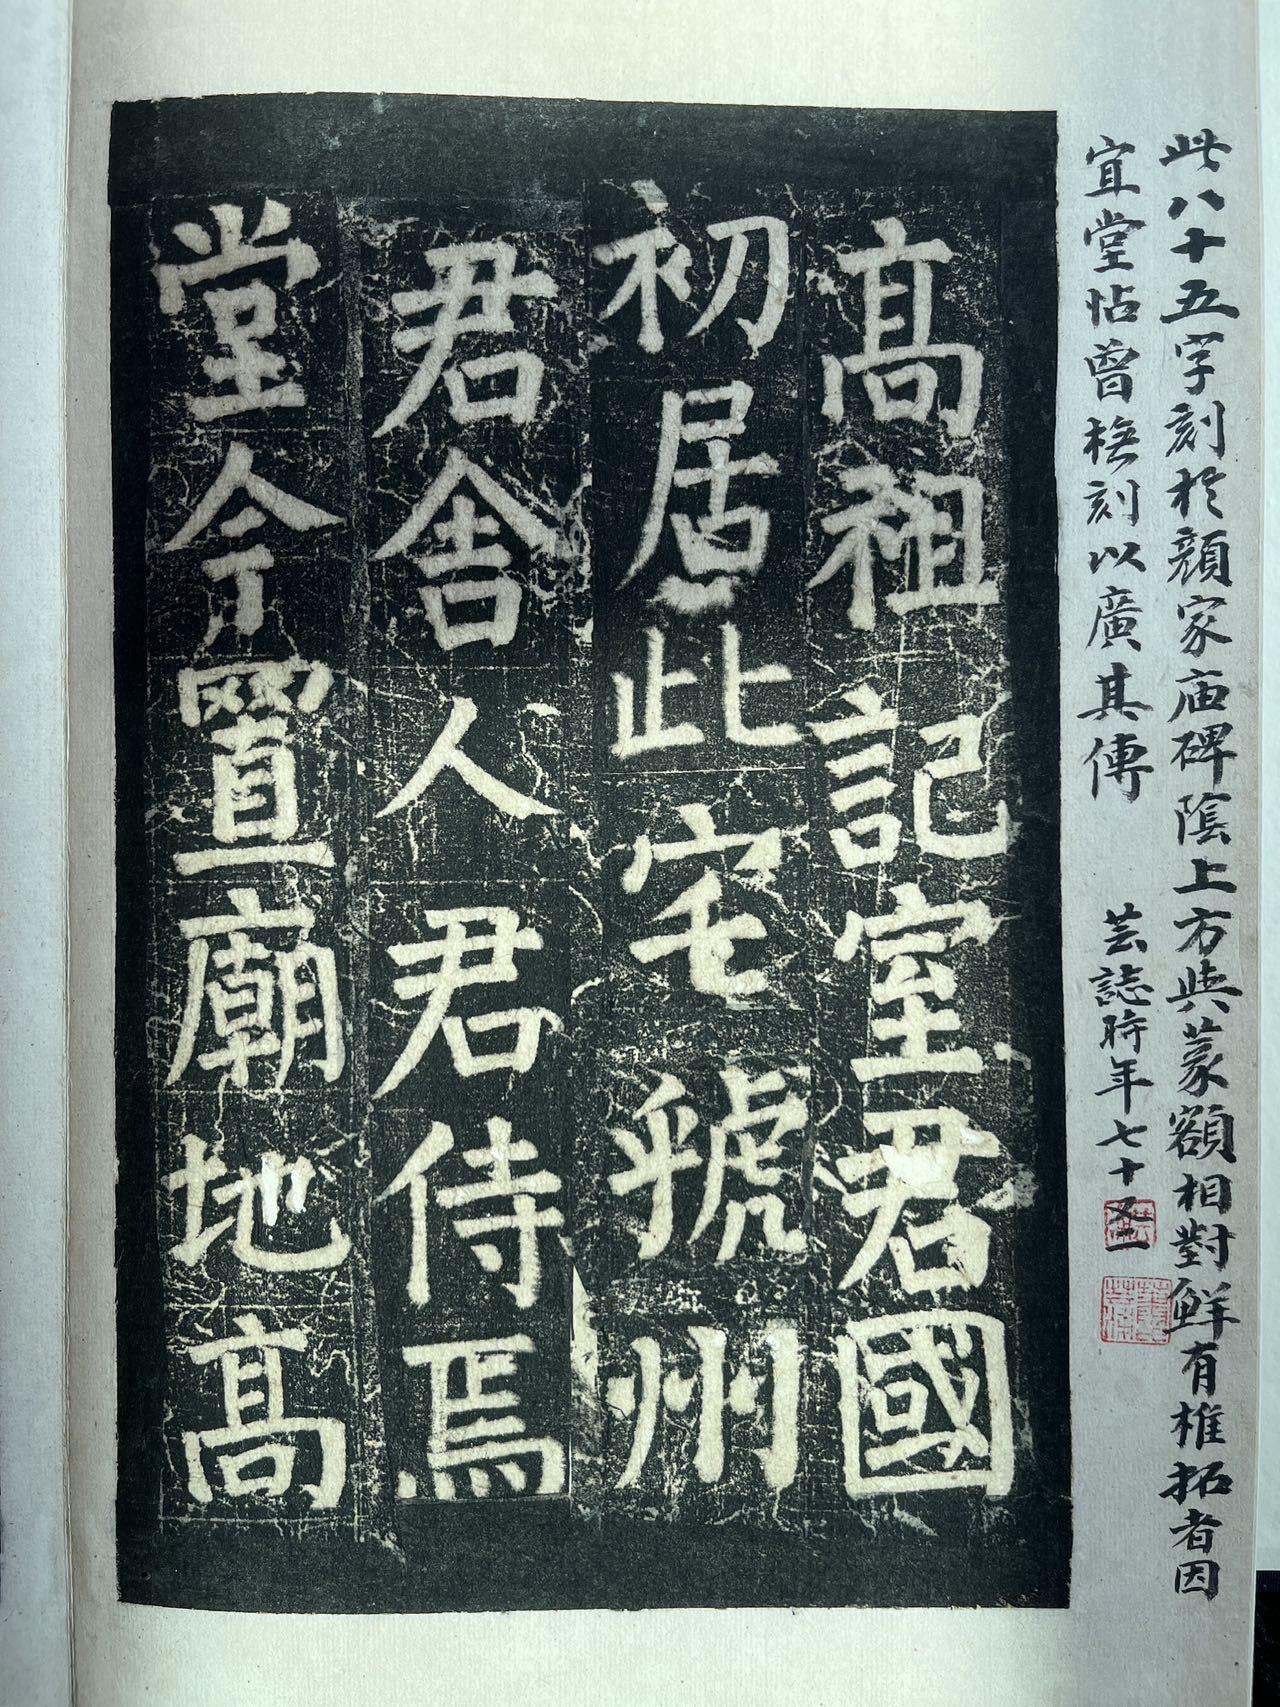 此八十五字刻於顏家庙碑陰上方與篆額相對鮮有椎拓者因
宜堂帖曾橅刻以廣其傳 芸誌時年七十又二
高祖記室君國
初居此宅號州
君舍人君侍焉
堂今置廟地高